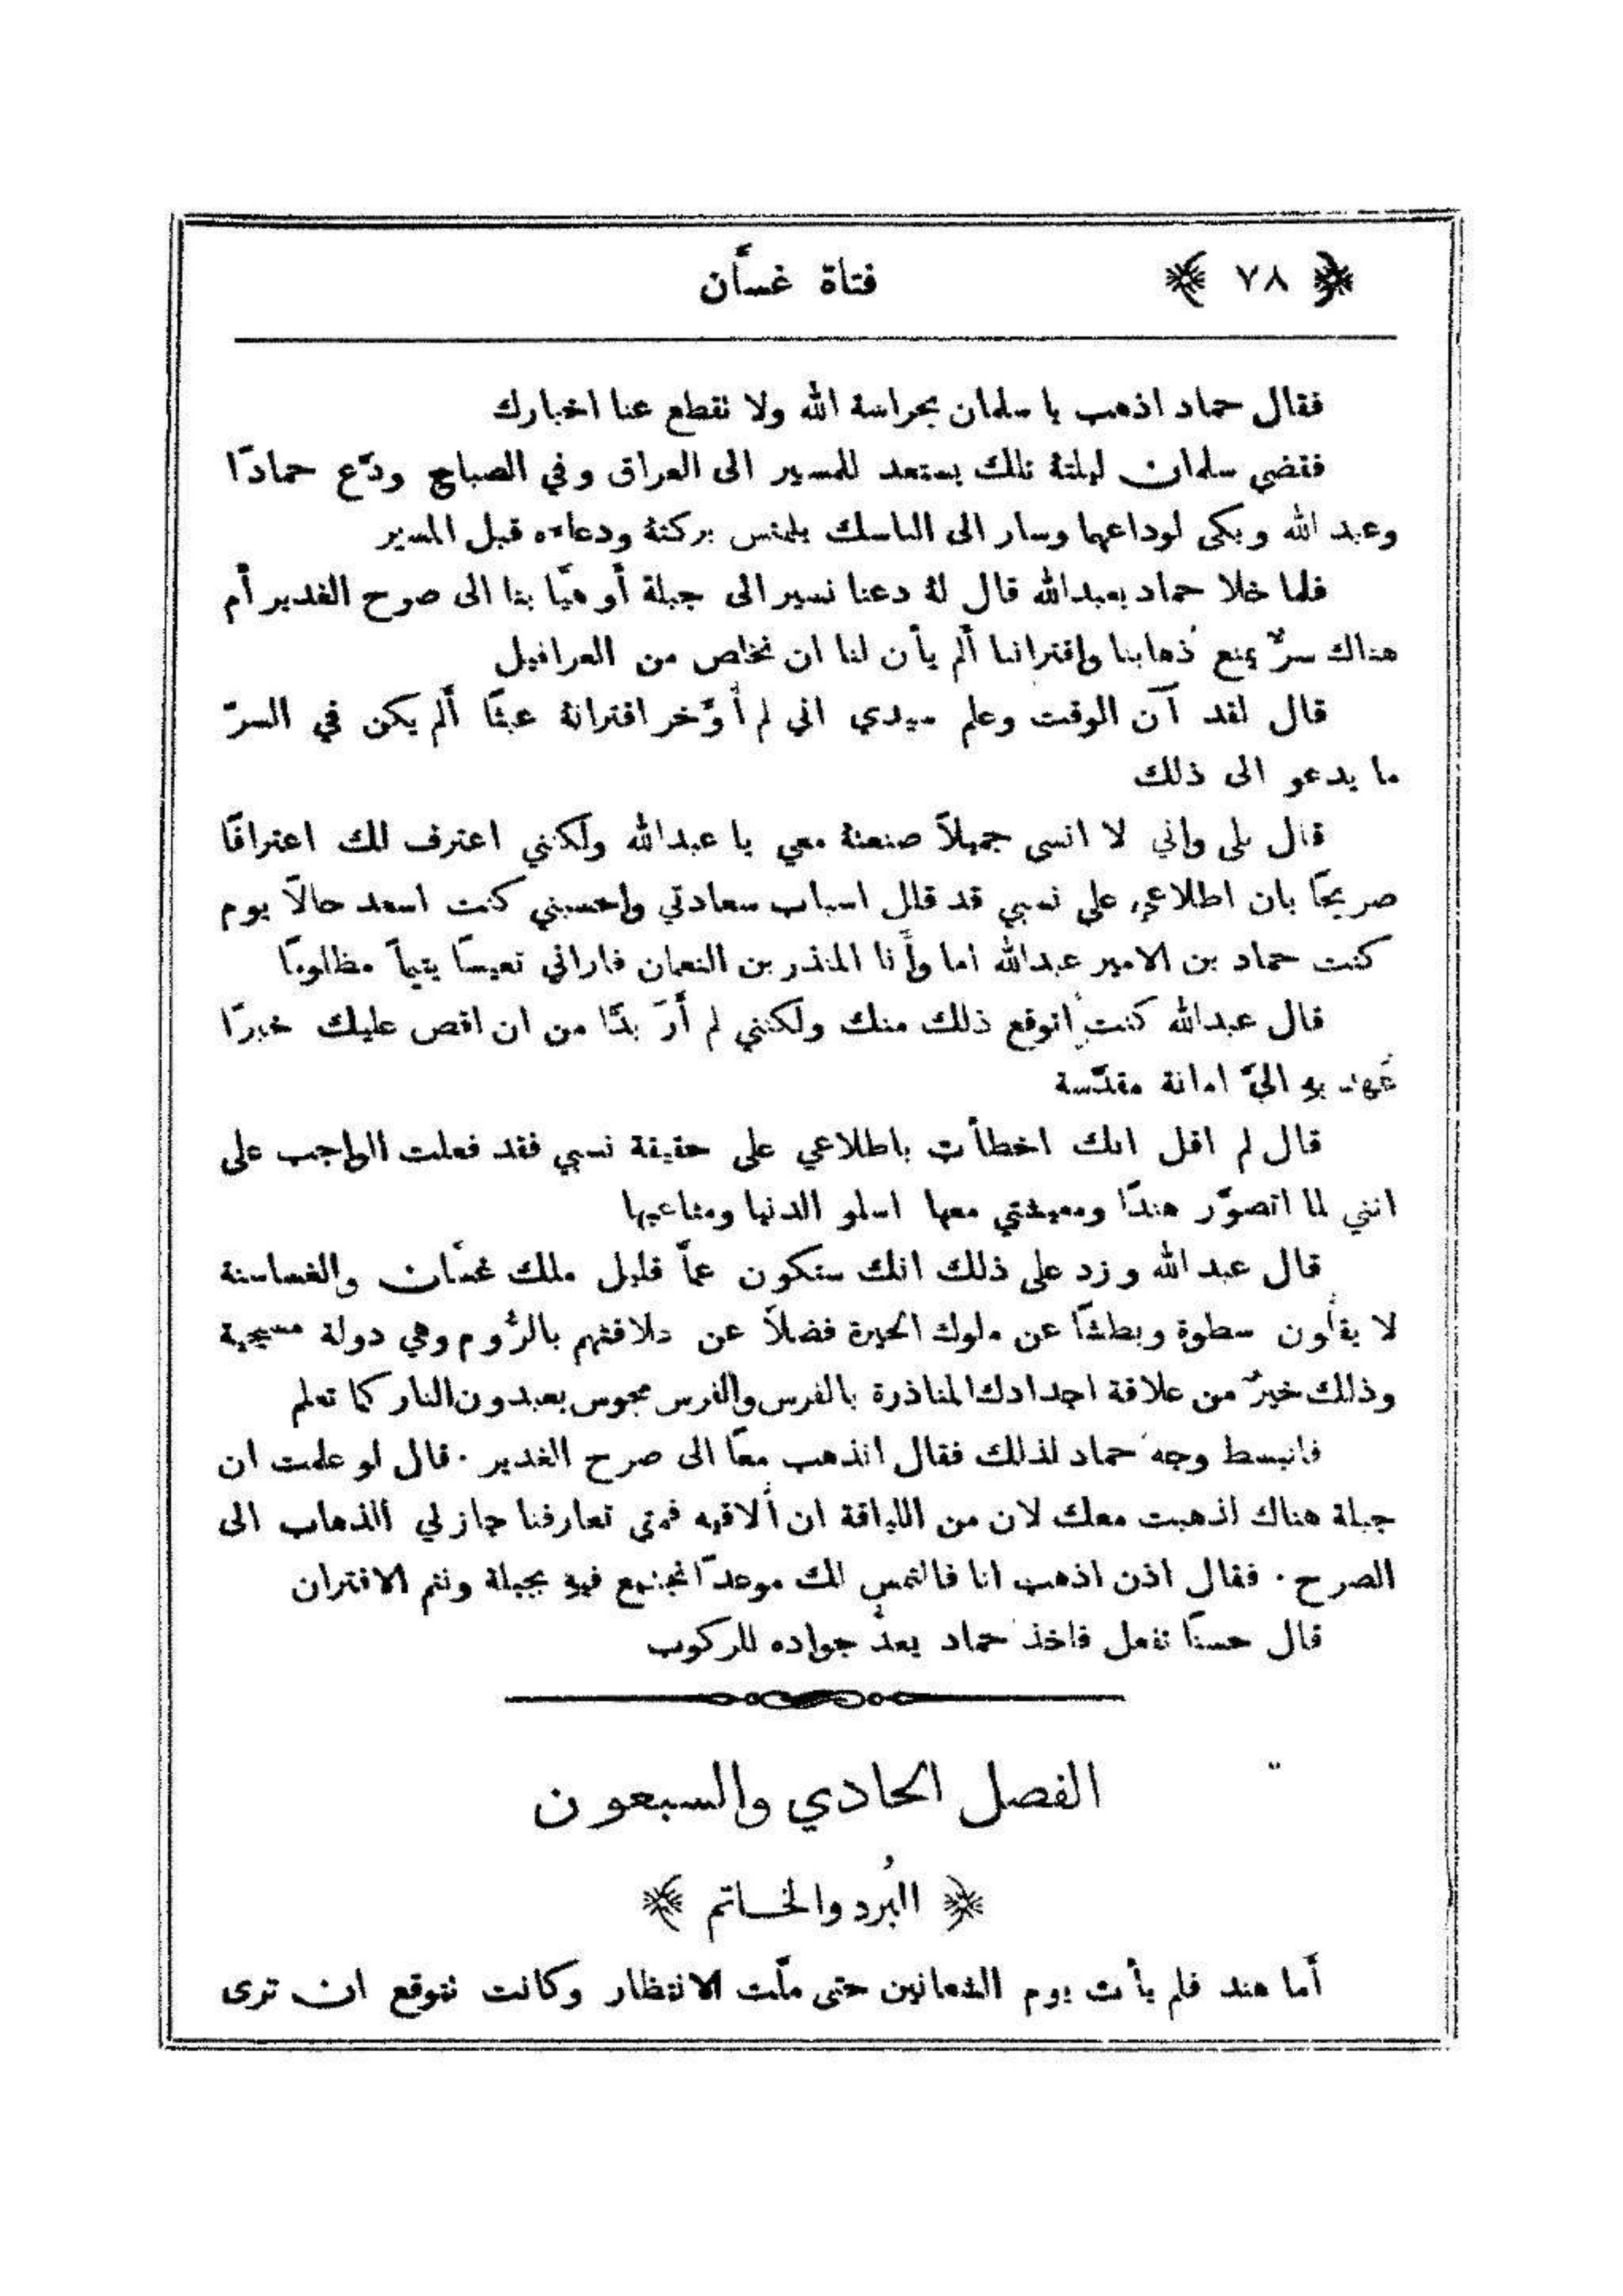 ﴿ ٧٨ ﴾ فتاة غسَّان
فقال حماد اذهب يا سلمان بحراسة الله ولا تقطع عنا اخبارك
فقضي سلمان ليلتهُ تلك يستعد للمسير الى العراق وفي الصباح ودَّع حمادًا
وعبد الله وبكى لوداعهما وسار الى الناسك يلتمس بركتهُ ودعاءه قبل المسير
فلما خلا حماد بعبدالله قال لهُ دعنا نسير الى جبلة أو هيَّا بنا الى صرح الغدير أم
هناك سرٌّ يمنع ذهابنا واقتراننا ألم يأن لنا ان نخلص من العراقيل
قال لقد آن الوقت وعلم سيدي اني لم أُوَّخر اقترانهُ عبثًا ألم يكن في السرّ
ما يدعو الى ذلك
قال بلى واني لا انسى جميلاً صنعتهُ معي يا عبدالله ولكنني اعترف لك اعترافًا
صريحًا بان اطلاعي على نسبي قد قلل اسباب سعادتي واحسبني كنت اسعد حالاً يوم
كنت حماد بن الامير عبدالله اما وأنا المنذر بن النعمان فاراني تعيسًا يتيماً مظلومًا
قال عبدالله كنت أتوقع ذلك منك ولكنني لم أرَ بدًّا من ان اقص عليك خبرًا
عُهد بهِ اليَّ امانة مقدَّسة
قال لم اقل انك اخطأت باطلاعي على حقيقة نسبي فقد فعلت الواجب على
انني لما اتصوَّر هندًا ومعيشتي معها اسلو الدنيا ومتاعبها
قال عبد الله وزد على ذلك انك ستكون عماَّ قليل ملك غسَّان والغساسنة
لا يقلُّون سطوة وبطشًا عن ملوك الحيرة فضلاً عن علاقتهم بالرُّوم وهي دولة مسيحية
وذلك خيرٌ من علاقة اجدادك المناذرة بالفرس والفرس مجوس يعبدون النار كما تعلم
فانبسط وجه حماد لذلك فقال انذهب معًا الى صرح الغدير . قال لو علمت ان
جبلة هناك لذهبت معك لان من اللياقة ان أُلاقيه فمتى تعارفنا جاز لي الذهاب الى
الصرح . فقال اذن اذهب انا فالتمس لك موعدًا نجتمع فيهِ بجبلة ونتم الاقتران
قال حسنًا تفعل فاخذ حماد يعدُّ جواده للركوب
الفصل الحادي والسبعون
﴿ البُرد والخاتم ﴾
أَما هند فلم يأت يوم الشعانين حتى ملَّت الانتظار وكانت تتوقع ان ترى